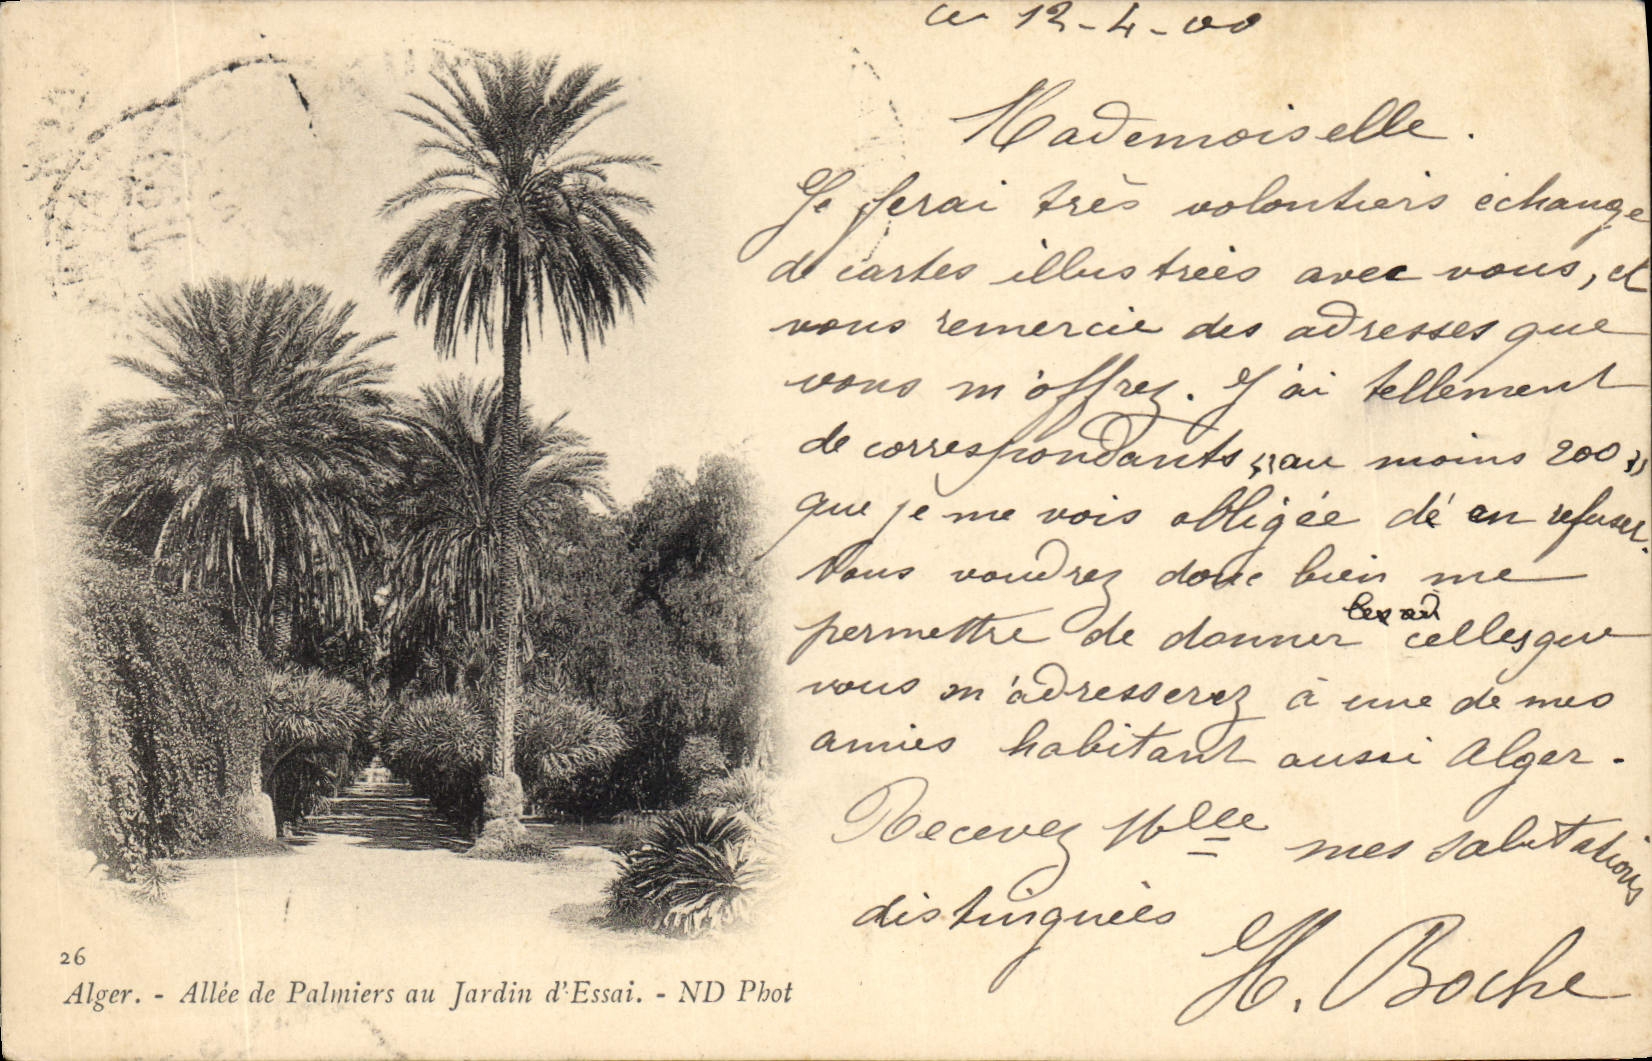 ce 12-4-00
Mademoiselle.
Je ferai très volontiers échange
de cartes illustrées avec vous, et
vous remercie des adresses que
vous m'offrez. J'ai tellement
de correspondants, "au moins 200"
que je me vois obligée de en refuser.
Vous voudrez donc bien me
permettre de donner celles que
vous m'adresserez à une de mes
amies habitant aussi Alger.
Recevez Mlle mes salutations
distinguées
H. Boche
26
Alger. - Allée de Palmiers au Jardin d'Essai. - ND Phot